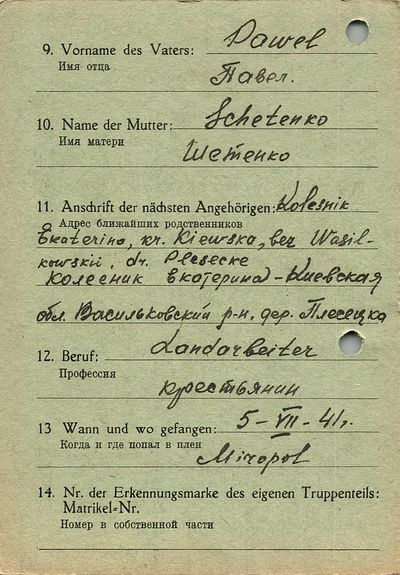 9. Vorname des Vaters: Pawel
Имя отца
Павел.
10. Name der Mutter: Schetenko
Имя матери
Шетенко
11. Anschrift der nächsten Angehörigen: Kolesnik
Адрес ближайших родственников
Ekaterina, kr. Kiewska, bez Wasil-
kowskii, dr. Plesecke
Колесник Екатерина – Киевская
обл. Васильковский р-н, дер. Плесецка
12. Beruf: Landarbeiter
Профессия
крестьянин
13 Wann und wo gefangen: 5-VII-41г.
Когда и где попал в плен
Miropol
14. Nr. der Erkennungsmarke des eigenen Truppenteils:
Matrikel-Nr.
Номер в собственной части